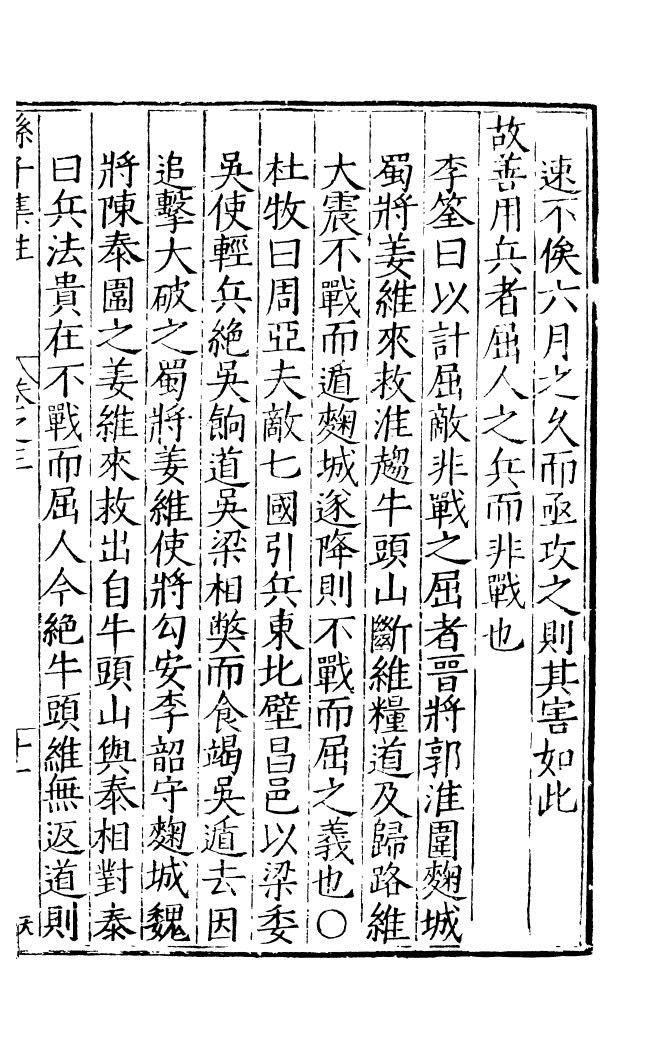 速不俟六月之久而亟攻之則其害如此
故善用兵者屈人之兵而非戰也
李筌曰以計屈敵非戰之屈者晉將郭淮圍麴城
蜀將姜維來救淮趨牛頭山斷維糧道及歸路維
大震不戰而遁麴城遂降則不戰而屈之義也〇
杜牧曰周亞夫敵七國引兵東北壁昌邑以梁委
吳使輕兵絕吳餉道吳梁相弊而食竭吳遁去因
追擊大破之蜀將姜維使將勾安李韶守麴城魏
將陳泰圍之姜維來救出自牛頭山與泰相對泰
曰兵法貴在不戰而屈人今絕牛頭維無返道則
孫子集註 卷之三 十一